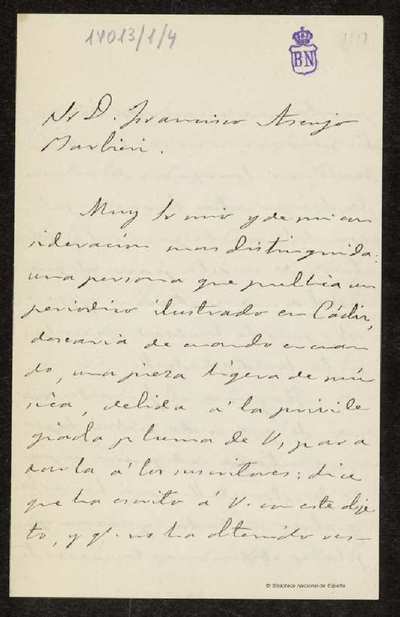 14013/1/4
BN
Sr D. Francisco Asenjo
Barbieri.
Muy Sr mio y de mi con
sideración mas distinguida:
una persona que publica un
periodico ilustrado en Cádiz,
desearia de cuando en cuan
do, una pieza ligera de mú
sica, debida á la privile
giada pluma de V, para
darla á los suscritores; dice
que ha escrito á V. con este obje
to, y qe. no ha obtenido res-
© Biblioteca Nacional de España